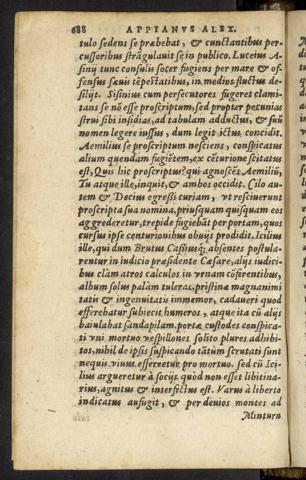 688 APPIANVS ALEX.
tulo sedens se præbebat, & cunctantibus per-
cussoribus strãgulauit se in publico. Luceius A-
sinij tunc consulis socer fugiens per mare & of-
fensus sæuis tẽpestatibus, in medios fluctus de-
silijt. Sisinius cum persecutores fugeret clami-
tans se nõ esse proscriptum, sed propter pecunias
strui sibi insidias, ad tabulam adductus, & suũ
nomen legere iussus, dum legit ictus concidit.
Aemilius se proscriptum nesciens, conspicatus
alium quendam fugiẽtem, ex cẽturione scitatus
est, Quis hic proscriptus? qui agnoscẽs Aemiliũ,
Tu atque ille, inquit, & ambos occidit. Cilo au-
tem & Decius egressi curiam, vt resciuerunt
proscripta sua nomina, priusquam quisquam eos
aggrederetur, trepide fugiebãt per portam, quos
cursus ipse centurionibus obuijs prodidit. Icilius
ille, qui dum Brutus Cassiusq; absentes postula-
rentur in iudicio præsidente Cæsare, alijs iudici-
bus clàm atros calculos in vrnam cõijcientibus,
album solus palàm tulerat, pristina magnanimi
tatis & ingenuitatis immemor, cadaueri quod
efferebatur subiecit humeros, atque ita cũ alijs
baiulabat sandapilam. portæ custodes conspica-
ti vni mortuo vespillones solito plures adhibi-
tos, nihil de ipsis suspicando tãtùm scrutati sunt
nequis viuus efferretur pro mortuo. sed cũ Ici-
lius argueretur à socijs quòd non esset libitina-
rius, agnitus & interfectus est. Varus à liberto
indicatus aufugit, & per deuios montes ad
Minturn